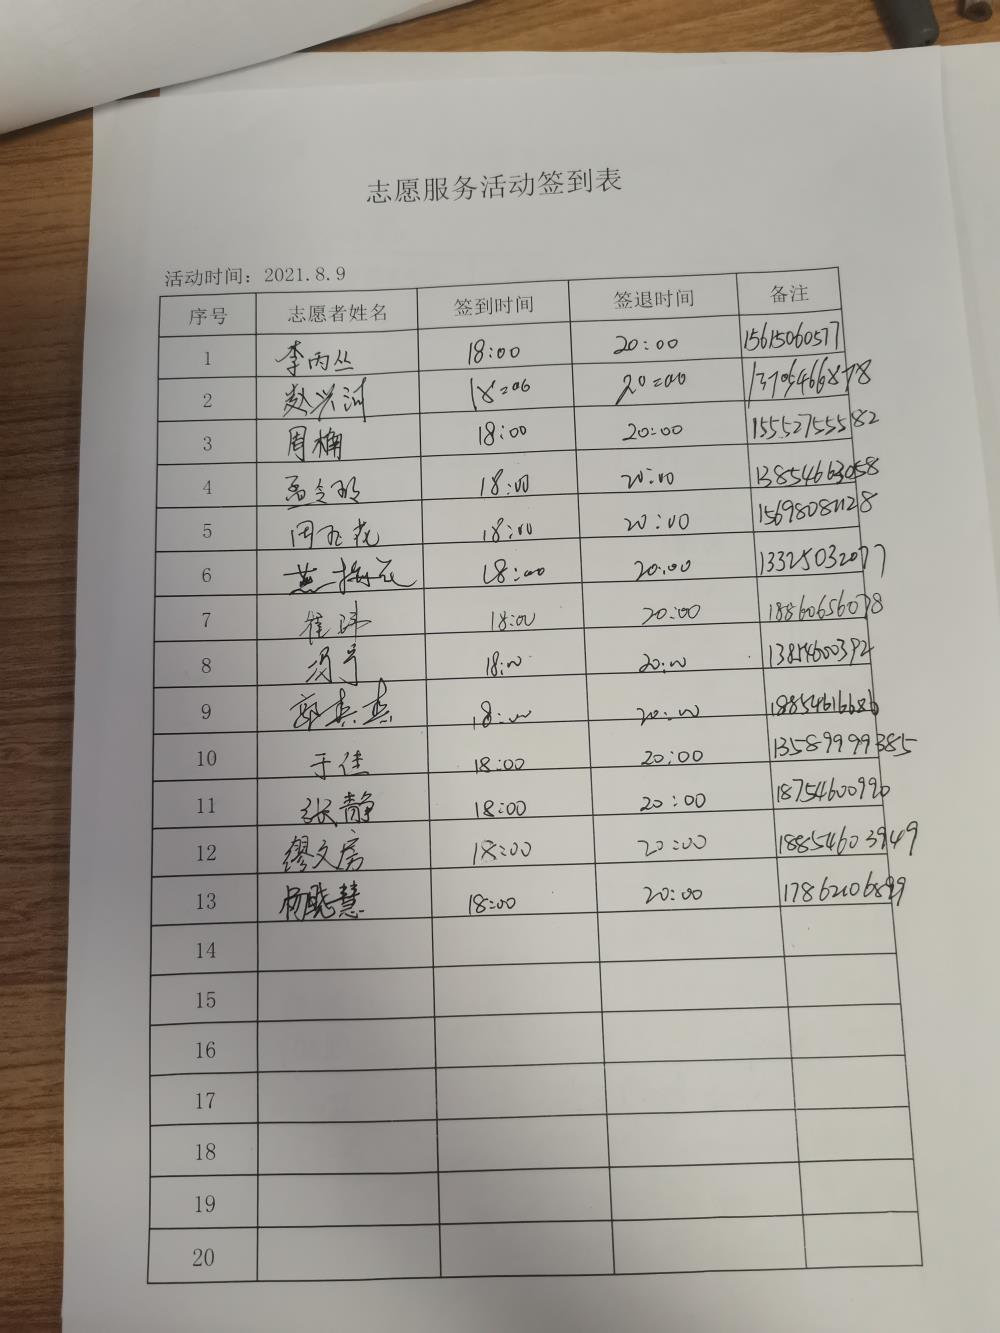 志愿服务活动签到表
活动时间：2021.8.9
序号 志愿者姓名 签到时间 签退时间 备注
1 李丙丛 18:00 20:00 15615060577
2 赵兴河 18:00 20:00 13705466878
3 周楠 18:00 20:00 15552755582
4 18:00 20:00 13854663058
5 18:00 20:00
6 燕 18:00 20:00 13325032077
7 崔玮 18:00 20:00 18860656078
8 18:00 20:00 13854600392
9 郭杰杰 18:00 20:00 18854616686
10 于佳 18:00 20:00 13589999385
11 张静 18:00 20:00 18754600990
12 缪文房 18:00 20:00 18854603949
13 杨晓慧 18:00 20:00 17862106899
14
15
16
17
18
19
20